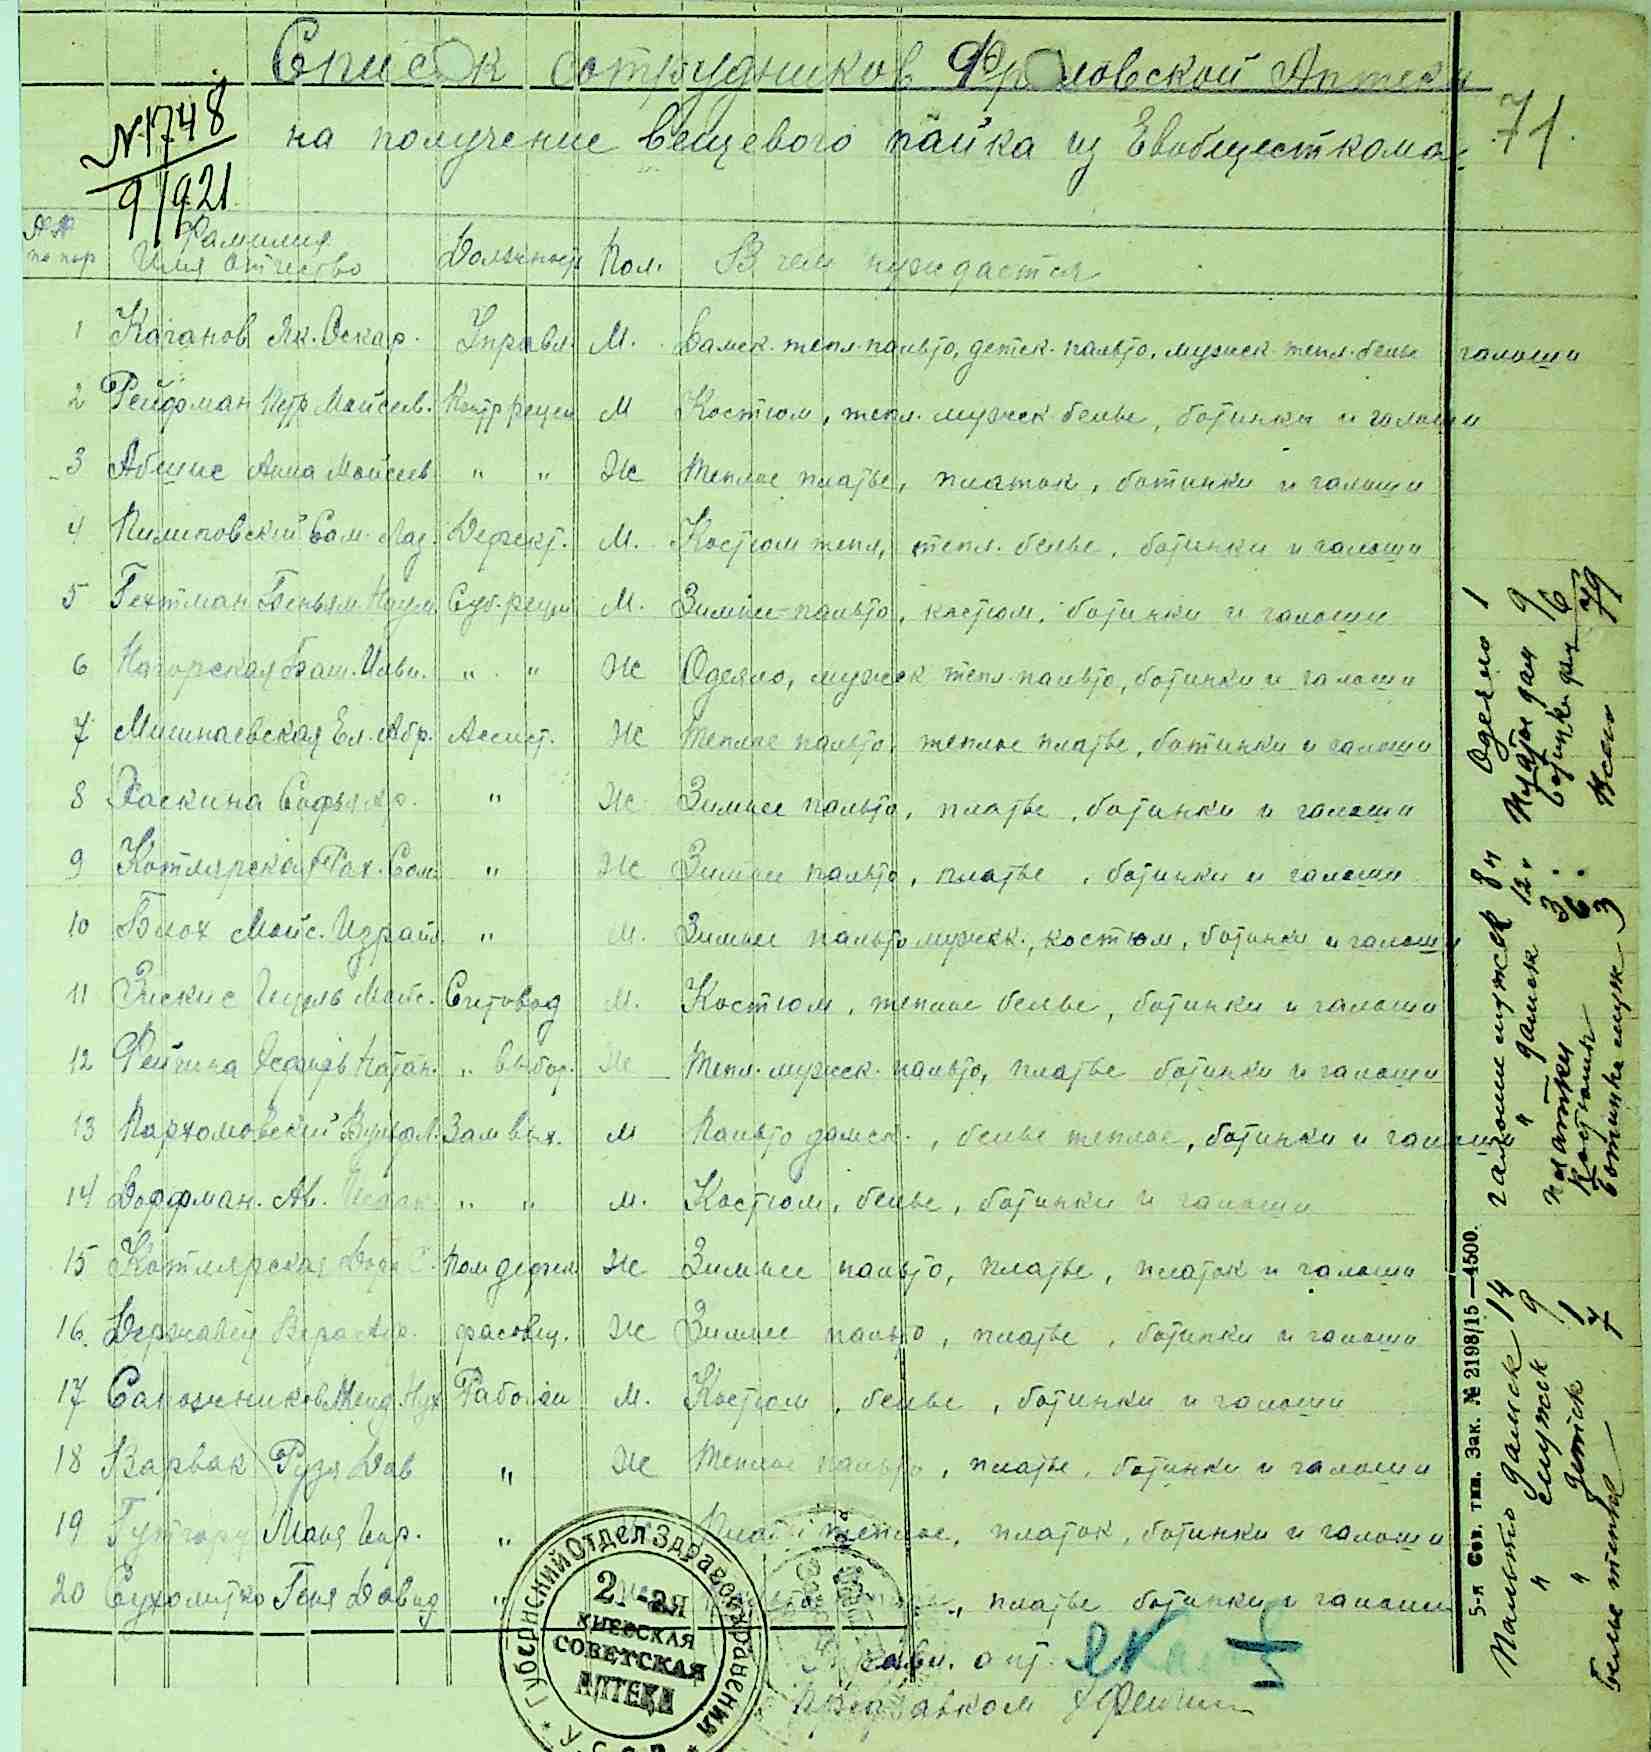 Список сотрудников Фроловской Аптеки
на получение вещевого пайка из Евобщесткома
71.
N1748
9/921
№№ по пор
Фамилия Имя Отчество
Должность
Пол.
В чем нуждается
1 Каганов Як. Оскар. Управл. М. Дамск. тепл. пальто, детск. пальто, мужск. тепл. белье галоши
2 Рейфман Петр Моисеев. Контр рецеп М Костюм, тепл. мужск. белье, ботинки и галоши
3 Абшис Анна Моисеев " " Ж Теплое платье, платок, ботинки и галоши
4 Пилиповский Сам. Лаз. Дефект. М. Костюм тепл, тепл. белье, ботинки и галоши
5 Гехтман Беньям Наум. Суб. рецеп М. Зимнее пальто, костюм, ботинки и галоши
6 Нагорская Баш. Ильи. " " Ж Одеяло, мужск тепл. пальто, ботинки и галоши
7 Мишнаевская Ел. Абр. Ассист. Ж Теплое пальто, теплое платье, ботинки и галоши
8 Хаскина Софья " Ж Зимнее пальто, платье, ботинки и галоши
9 Котлярская Рах. Сам " Ж Зимнее пальто, платье, ботинки и галоши
10 Блох Мойс. Израил. " М. Зимнее пальто мужск., костюм, ботинки и галоши
11 Зискис Шуль Мойс. Счетовод М. Костюм, теплое белье, ботинки и галоши
12 Фейгина Натан. " выбор. Ж Тепл. мужск. пальто, платье ботинки и галоши
13 Пархомовский Зам вых. М Пальто дамск., белье теплое, ботинки и галоши
14 Доффман. Ав. Исаак. " " М. Костюм, белье, ботинки и галоши
15 Котлярская Дора Пом дефек. Ж Зимнее пальто, платье, платок и галоши
16. Державец Вера фасовщ. Ж Зимнее пальто, платье, ботинки и галоши
17 Сапожников Менд. Нух Рабочий М. Костюм, белье, ботинки и галоши
18 Варвак Рузя Дав " Ж Теплое пальто, платье, ботинки и галоши
19 Маня " теплое, платок, ботинки и галоши
20 Сухолитко Геня Давид " платье ботинки и галоши
Управл. апт.
Предзавком
Губернский Отдел Здравоохранения
2-ая
Киевская
Советская
Аптека
У.С.С.Р.
5-я Сов. тип. Зак. № 2198/15—4500.
Пальто дамск 14 галоши мужск 8 Одеяло 1
" мужск 9 " дамск 12 Платья дам 9
" детск 1 Платки 3 Ботинки дам 16
Белье теплое 7 Костюмы 6 Всего 79
Ботинки муж 3